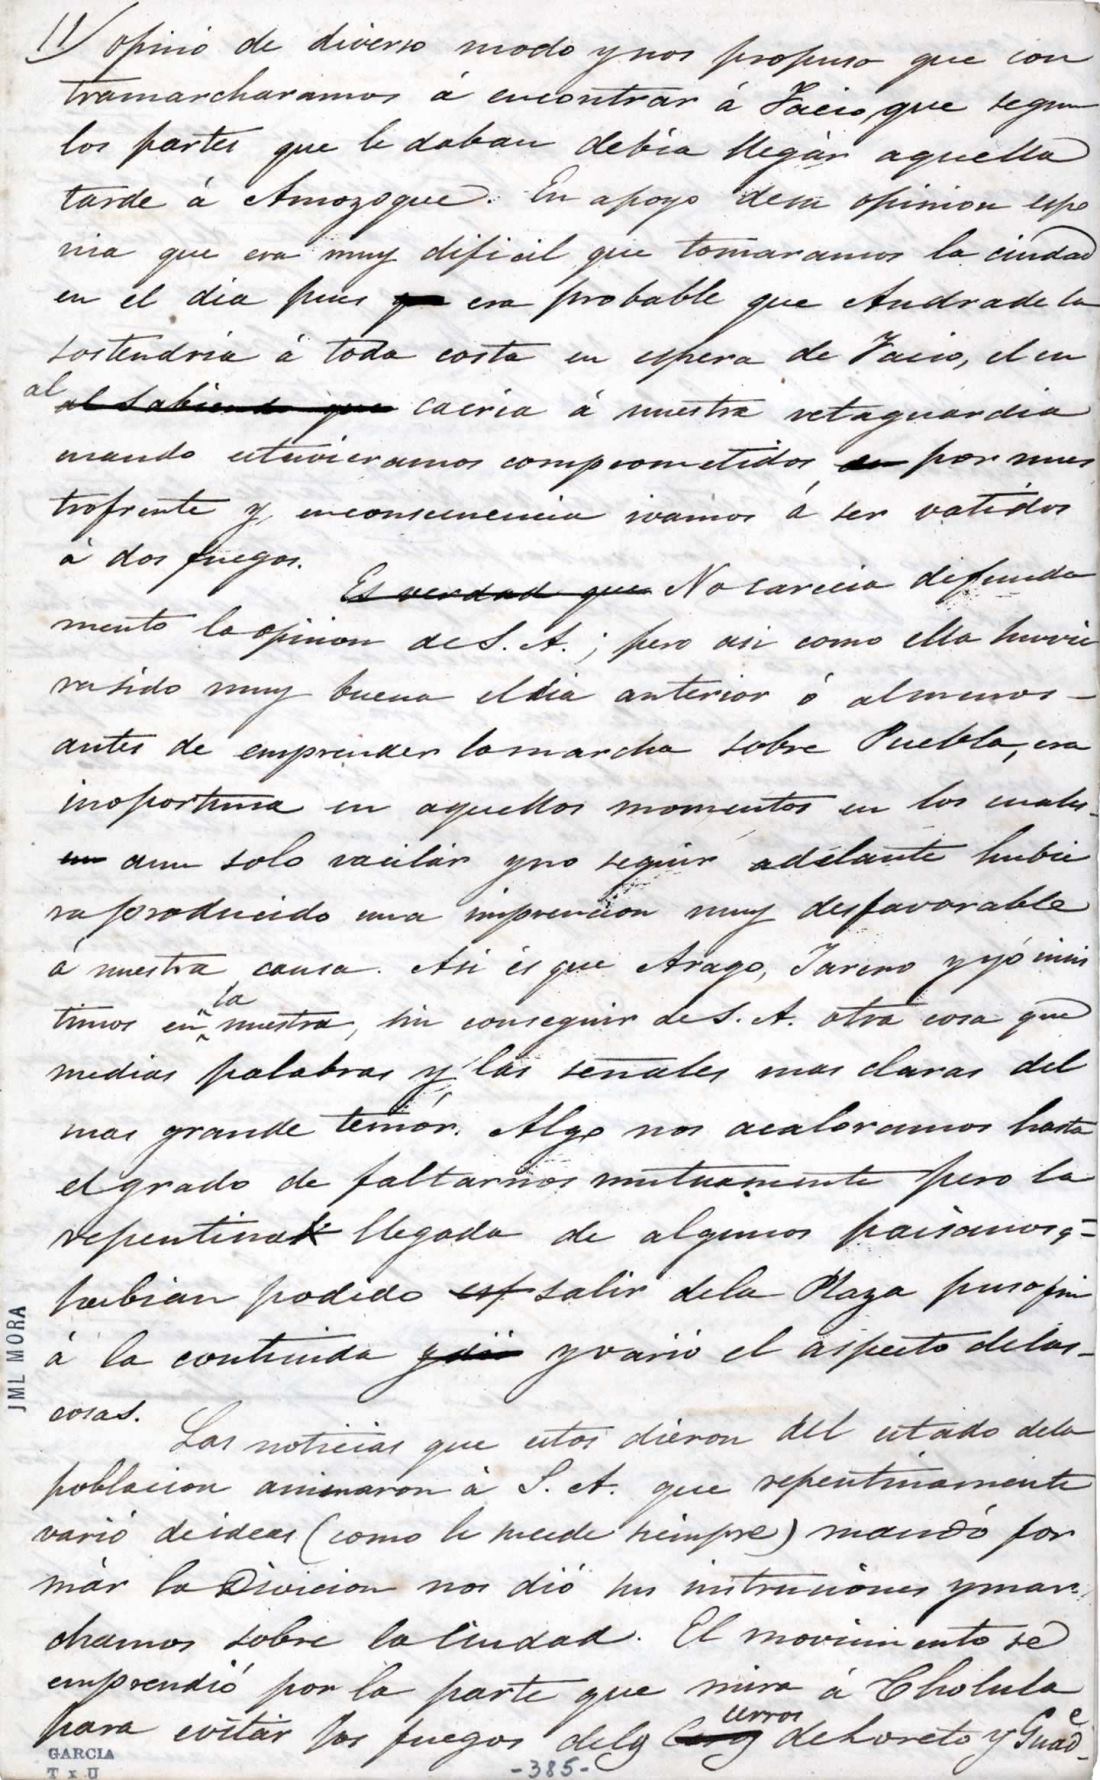 11/ opinó de diverso modo y nos propuso que con
tramarcharamos á encontrar á Facio, que segun
los partes que le daban debia llegar aquella
tarde á Amozoque. En apoyo desu opinion espo
nia que era muy dificil que tomaramos la ciudad
en el dia pues era probable que Andrade la
sostendria á toda costa en espera de Facio, el cu
al al sabiendo que caeria á nuestra retaguardia
cuando estuvieramos comprometidos en por nues
trofrente y enconsecuencia ivamos á ser vatidos
á dos fuegos.
Es verdad que No carecia defunda
mento la opinion de S. A.; pero asi como ella huvie
rasido muy buena eldia anterior ó almenos-
antes de emprender lamarcha sobre Puebla, era
inoportuna en aquellos momentos en los cuales-
un aun solo vacilar yno seguir adelante hubie
raproducido una imprecion muy desfavorable
á nuestra causa. Asi es que Arago, Jarero y yó insis
timos en la nuestra, sin conseguir de S. A. otra cosa que
medias palabras y las señales mas claras del
mas grande temór. Algo nos acaloramos hasta
el grado de faltarnos mutuamente pero la
repentina llegada de algunos paisanos q=
habian podido esf salir dela Plaza puso fin
á la contienda y dió y varió el aspecto delas-
cosas.
Las noticias que estos dieron del estado dela
poblacion animaron á S. A. que repentinamente
varió deideas (como le sucede siempre) mandó for
már la Divicion nos dió sus instruciónes ymar
chamos sobre la Ciudad. El movimiento se
emprendió por la parte que mira á Cholula
para evitar los fuegos delos cerros deLoreto y Guad-
JML MORA
GARCIA
T x U
-385-